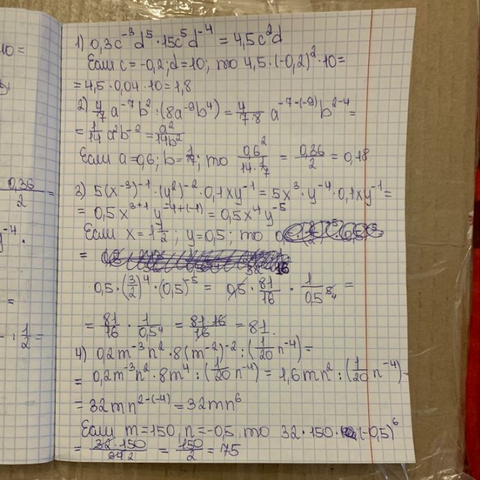 1) 0,3c⁻³d⁵ · 15c⁵d⁻⁴ = 4,5c²d
Если c = -0,2; d = 10; то 4,5 · (-0,2)² · 10 =
= 4,5 · 0,04 · 10 = 1,8
2) 4/7 a⁻⁷b² : (8a⁻⁹b⁴) = 4/(7·8) a⁻⁷⁻⁽⁻⁹⁾b²⁻⁴ =
= 1/14 a²b⁻² = a²/14b²
Если a = 0,6; b = 1/7; то 0,6²/(14 · 1/7) = 0,36/2 = 0,18
3) 5(x⁻³)⁻¹ · (y²)⁻² · 0,1xy⁻¹ = 5x³ · y⁻⁴ · 0,1xy⁻¹ =
= 0,5x³⁺¹y⁻⁴⁺⁽⁻¹⁾ = 0,5x⁴y⁻⁵
Если x = 1 1/2; y = 0,5; то
=
0,5 · (3/2)⁴ · (0,5)⁻⁵ = 0,5 · 81/16 · 1/0,5⁵ =
= 81/16 · 1/0,5⁴ = 81·16/16 = 81.
4) 0,2m⁻³n² · 8(m⁻²)⁻² : (1/20 n⁻⁴) =
= 0,2m⁻³n² · 8m⁴ : (1/20 n⁻⁴) = 1,6mn² : (1/20 n⁻⁴) =
= 32mn²⁻⁽⁻⁴⁾ = 32mn⁶
Если m = 150, n = -0,5, то 32 · 150 · (-0,5)⁶
= 150/2 = 75
0,36/2
y⁻⁴ ·
1/2 =